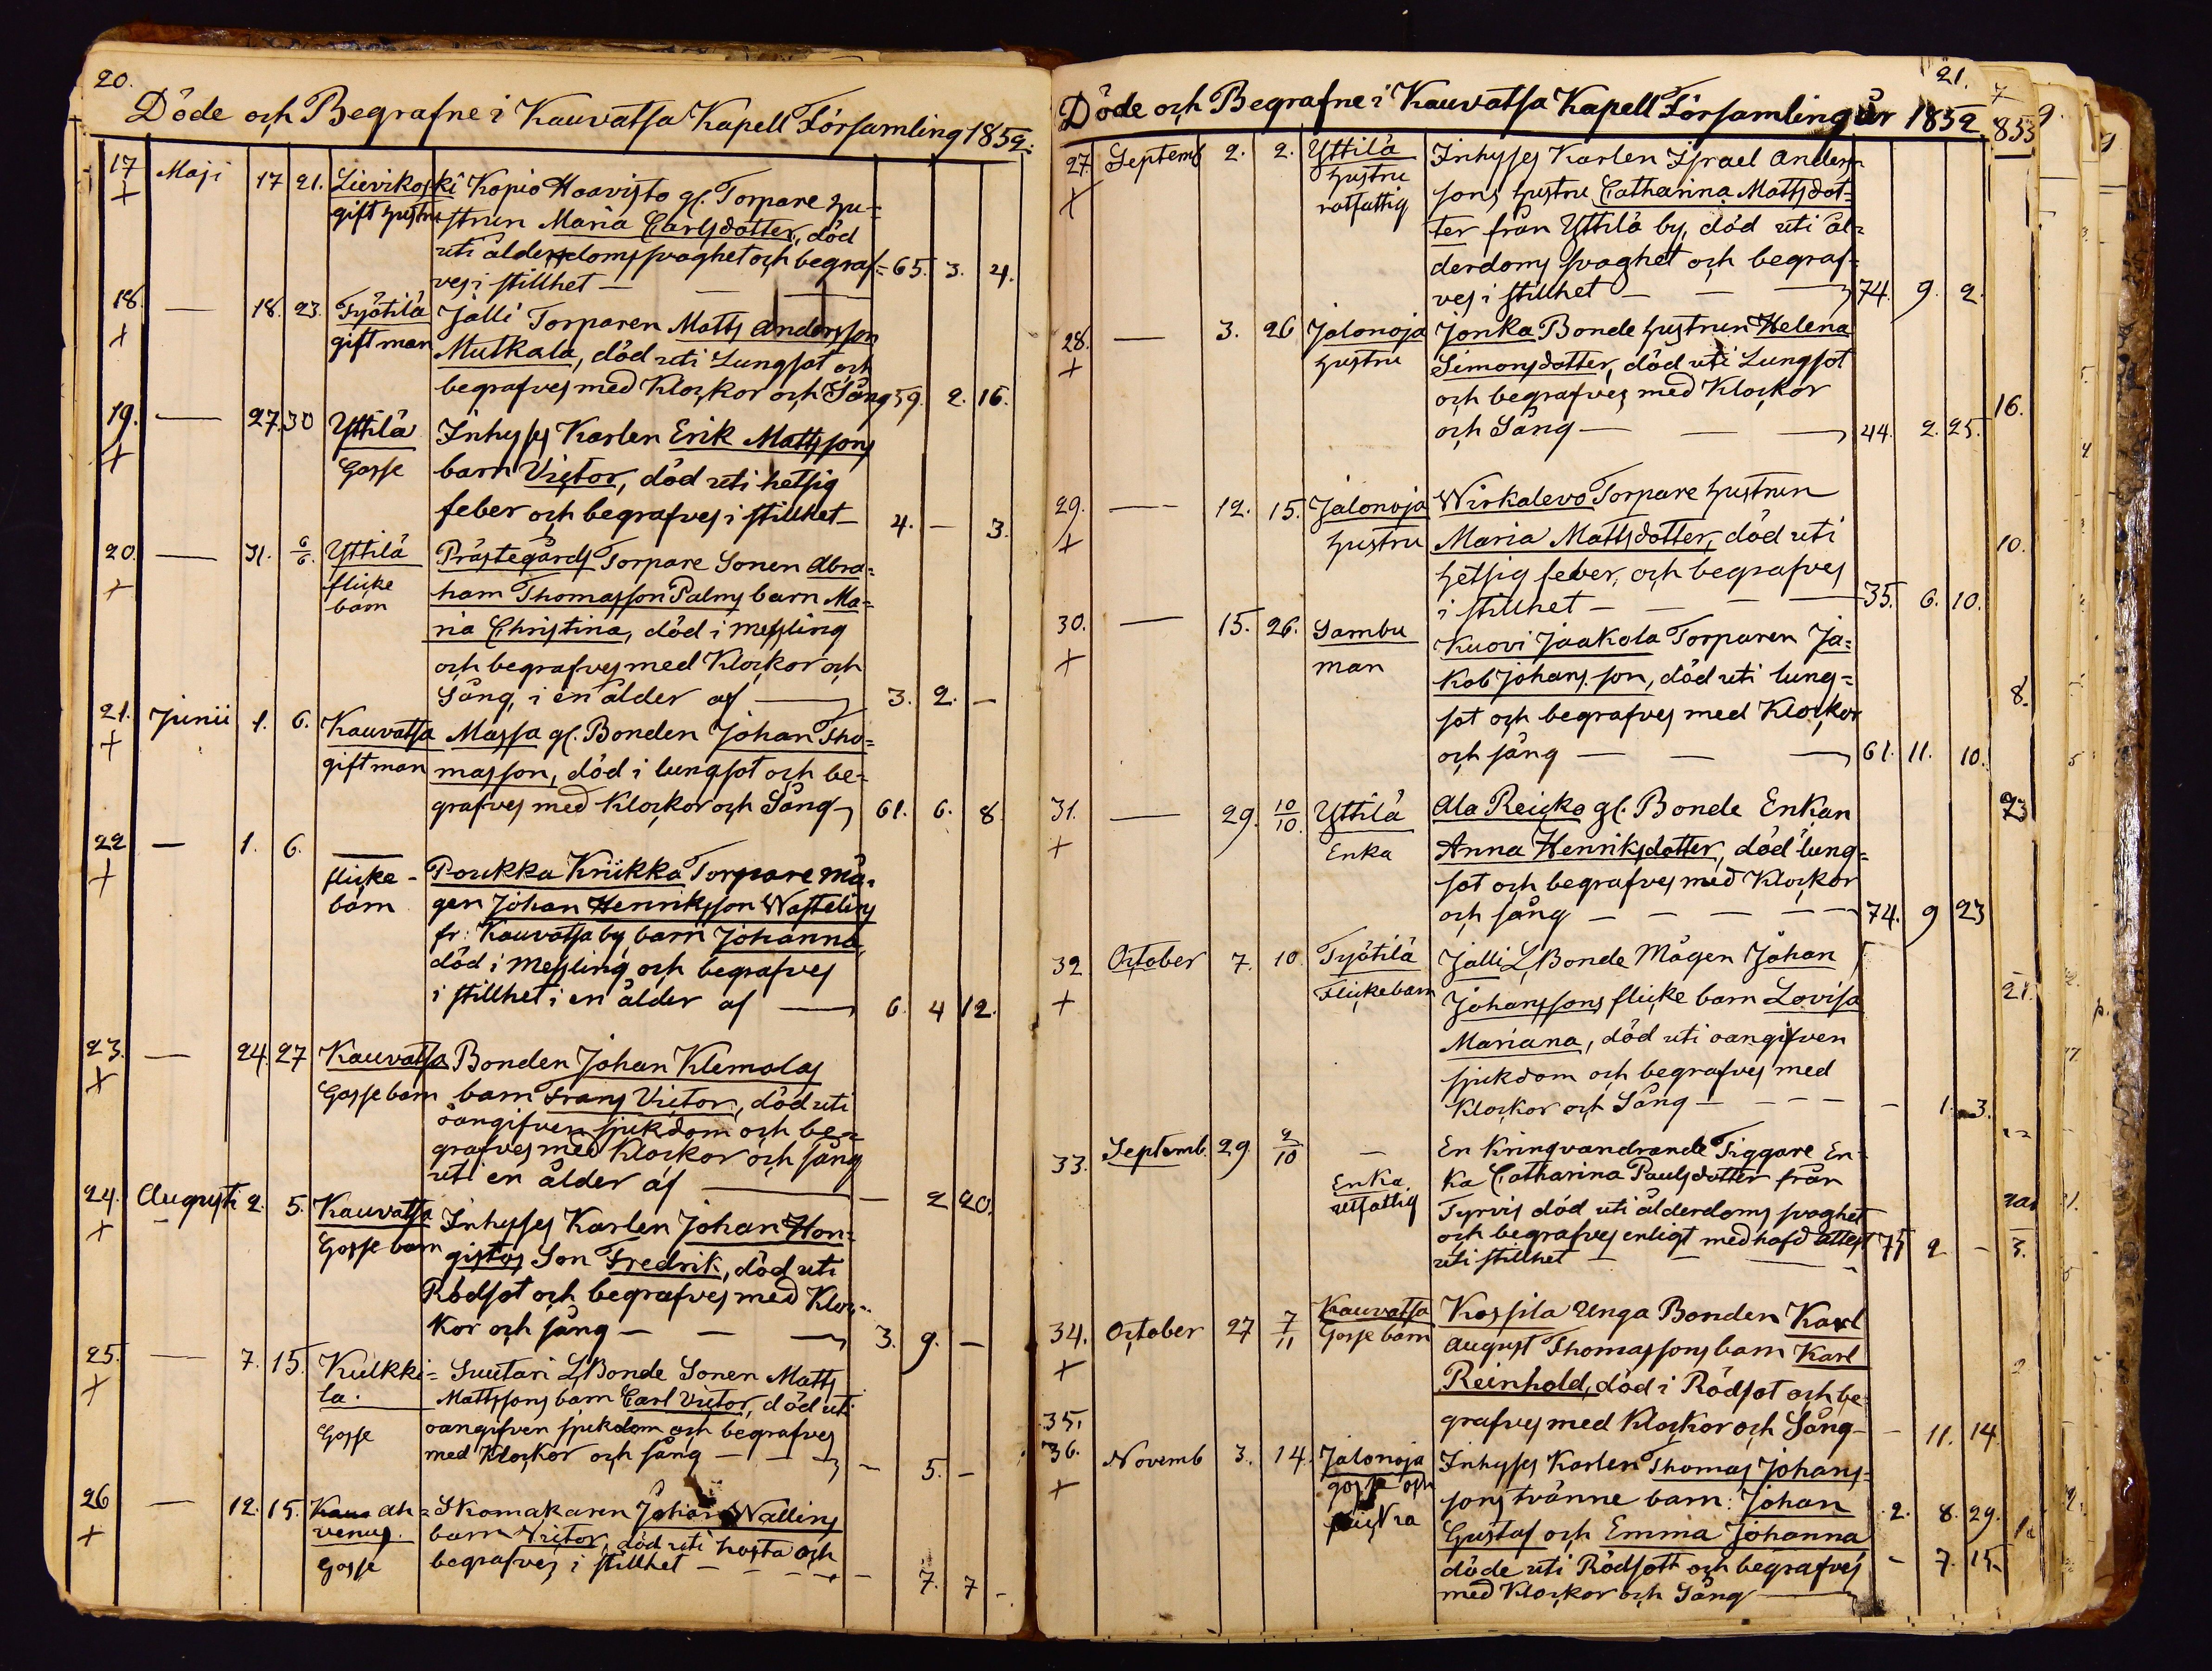 20.
Döde och Begrafne i Kauvatsa Kapell Församling 1852.
17 Maji 17 21. Lievikoski Kopio Haavisto gl. Torpare hu=
+ gift hustru strun Maria Carlsdotter, död
uti ålderdoms svaghet och begraf= 65. 3. 4.
ves i stillhet — — —
18. — 18. 23. Työtilä Jalli Torparen Matts Andersson
+ gift man Mutkala, död uti Lungsot och
begrafves med Klockor och Sång 59. 2. 16.
19. — 27. 30 Yttilä Inhyses Karlen Erik Mattssons
+ Gosse barn Victor, död uti hetsig
feber och begrafves i stillhet — 4. — 3.
20. — 31. 6/6. Yttilä Prästegårds Torpare Sonen Abra=
+ flicke ham Thomasson Palms barn Ma=
barn ria Christina, död i Messling
och begrafves med Klockor och
Sång, i en ålder af — 3. 2. —
21. Junii 1. 6. Kauvatsa Massa gl. Bonden Johan Tho=
+ gift man masson, död i lungsot och be=
grafves med Klockor och Sång 61. 6. 8.
22 — 1. 6. —
+ flicke- Poukka Kriikka Torpare Må=
barn gen Johan Henriksson Wastelins
fr: Kauvatsa by barn Johanna,
död i Messling och begrafves
i stillhet i en ålder af — 6. 4 12.
23. — 24. 27 Kauvatsa Bonden Johan Klemolas
+ Gosse barn barn Frans Victor, död uti
oangifven sjukdom och be=
grafves med Klockor och sång
uti en ålder af — — 2 20.
24. Augusti 2. 5. Kauvatsa Inhyses Karlen Johan Hon=
+ Gosse barn gistos Son Fredrik, död uti
Rödsot och begrafves med Kloc=
kor och sång — — — 3. 9. —
25. — 7. 15. Kulkki= Suutari L. Bonde Sonen Matts
+ la. Mattssons barn Carl Victor, död uti
Gosse oangifven sjukdom och begrafves
med Klockor och sång — — — 5. —
26 — 12. 15. Ah= Skomakaren Johan Wallins
+ venus. barn Victor, död uti hosta och
Gosse begrafves i stillhet — — — 7. 7 -
21.
Döde och Begrafne i Kauvatsa Kapell Församling år 1852
27. Septemb 2. 2. Yttilä Inhyses Karlen Israel Anders
+ hustru sons hustru Catharina Mattsdot=
rotfattig ter från Yttilä by, död uti ål=
derdoms svaghet och begraf=
ves i stillhet — — — 74. 9. 2.
28. — 3. 26 Jalonoja Jonka Bonde hustrun Helena
+ hustru Simonsdotter, död uti Lungsot
och begrafves med Klockor
och Sång — — — 44. 2. 25.
29. — 12. 15. Jalonoja Wirkalevo Torpare hustrun
+ hustru Maria Mattsdotter, död uti
hetsig feber, och begrafves
i stillhet — — — 35. 6. 10.
30. — 15. 26. Sambu Kuovi Jaakola Torparen Ja=
+ man kob Johans son, död uti lung=
sot och begrafves med Klockor
och sång — — — 61. 11. 10.
31. — 29. 10/10. Yttilä Ala Reicko gl. Bonde Enkan
+ Enka Anna Henriksdotter, död lung=
sot och begrafves med Klockor
och sång — — — — 74. 9 23
32 October 7. 10 Työtilä Jalli L. Bonde Mågen Johan
+ Flickebarn Johanssons flicke barn Lovisa
Mariana, död uti oangifven
sjukdom och begrafves med
Klockor och Sång — — — — 1. 3.
33. Septemb. 29. 2/10 — En kringvandrande Tiggare En=
Enka ka Catharina Paulsdotter från
utfattig Tyrvis död uti ålderdoms svaghet
och begrafves enligt medhafd attest 75 2 —
uti stillhet — — —
34. October 27 7/11 Kauvatsa Kossila Unga Bonden Karl
+ Gosse barn August Thomassons barn Karl
Reinhold, död i Rödsot och be=
35. grafves med Klockor och Sång — — 11. 14
36. Novemb 3. 14. Jalonoja Inhyses Karlen Thomas Johans=
+ gosse och sons tvänne barn: Johan 2. 8. 29.
flicka Gustaf och Emma Johanna
döde uti Rödsott och begrafves - 7. 15.
med Klockor och Sång —
853
16.
10.
8.
23
21.
3.